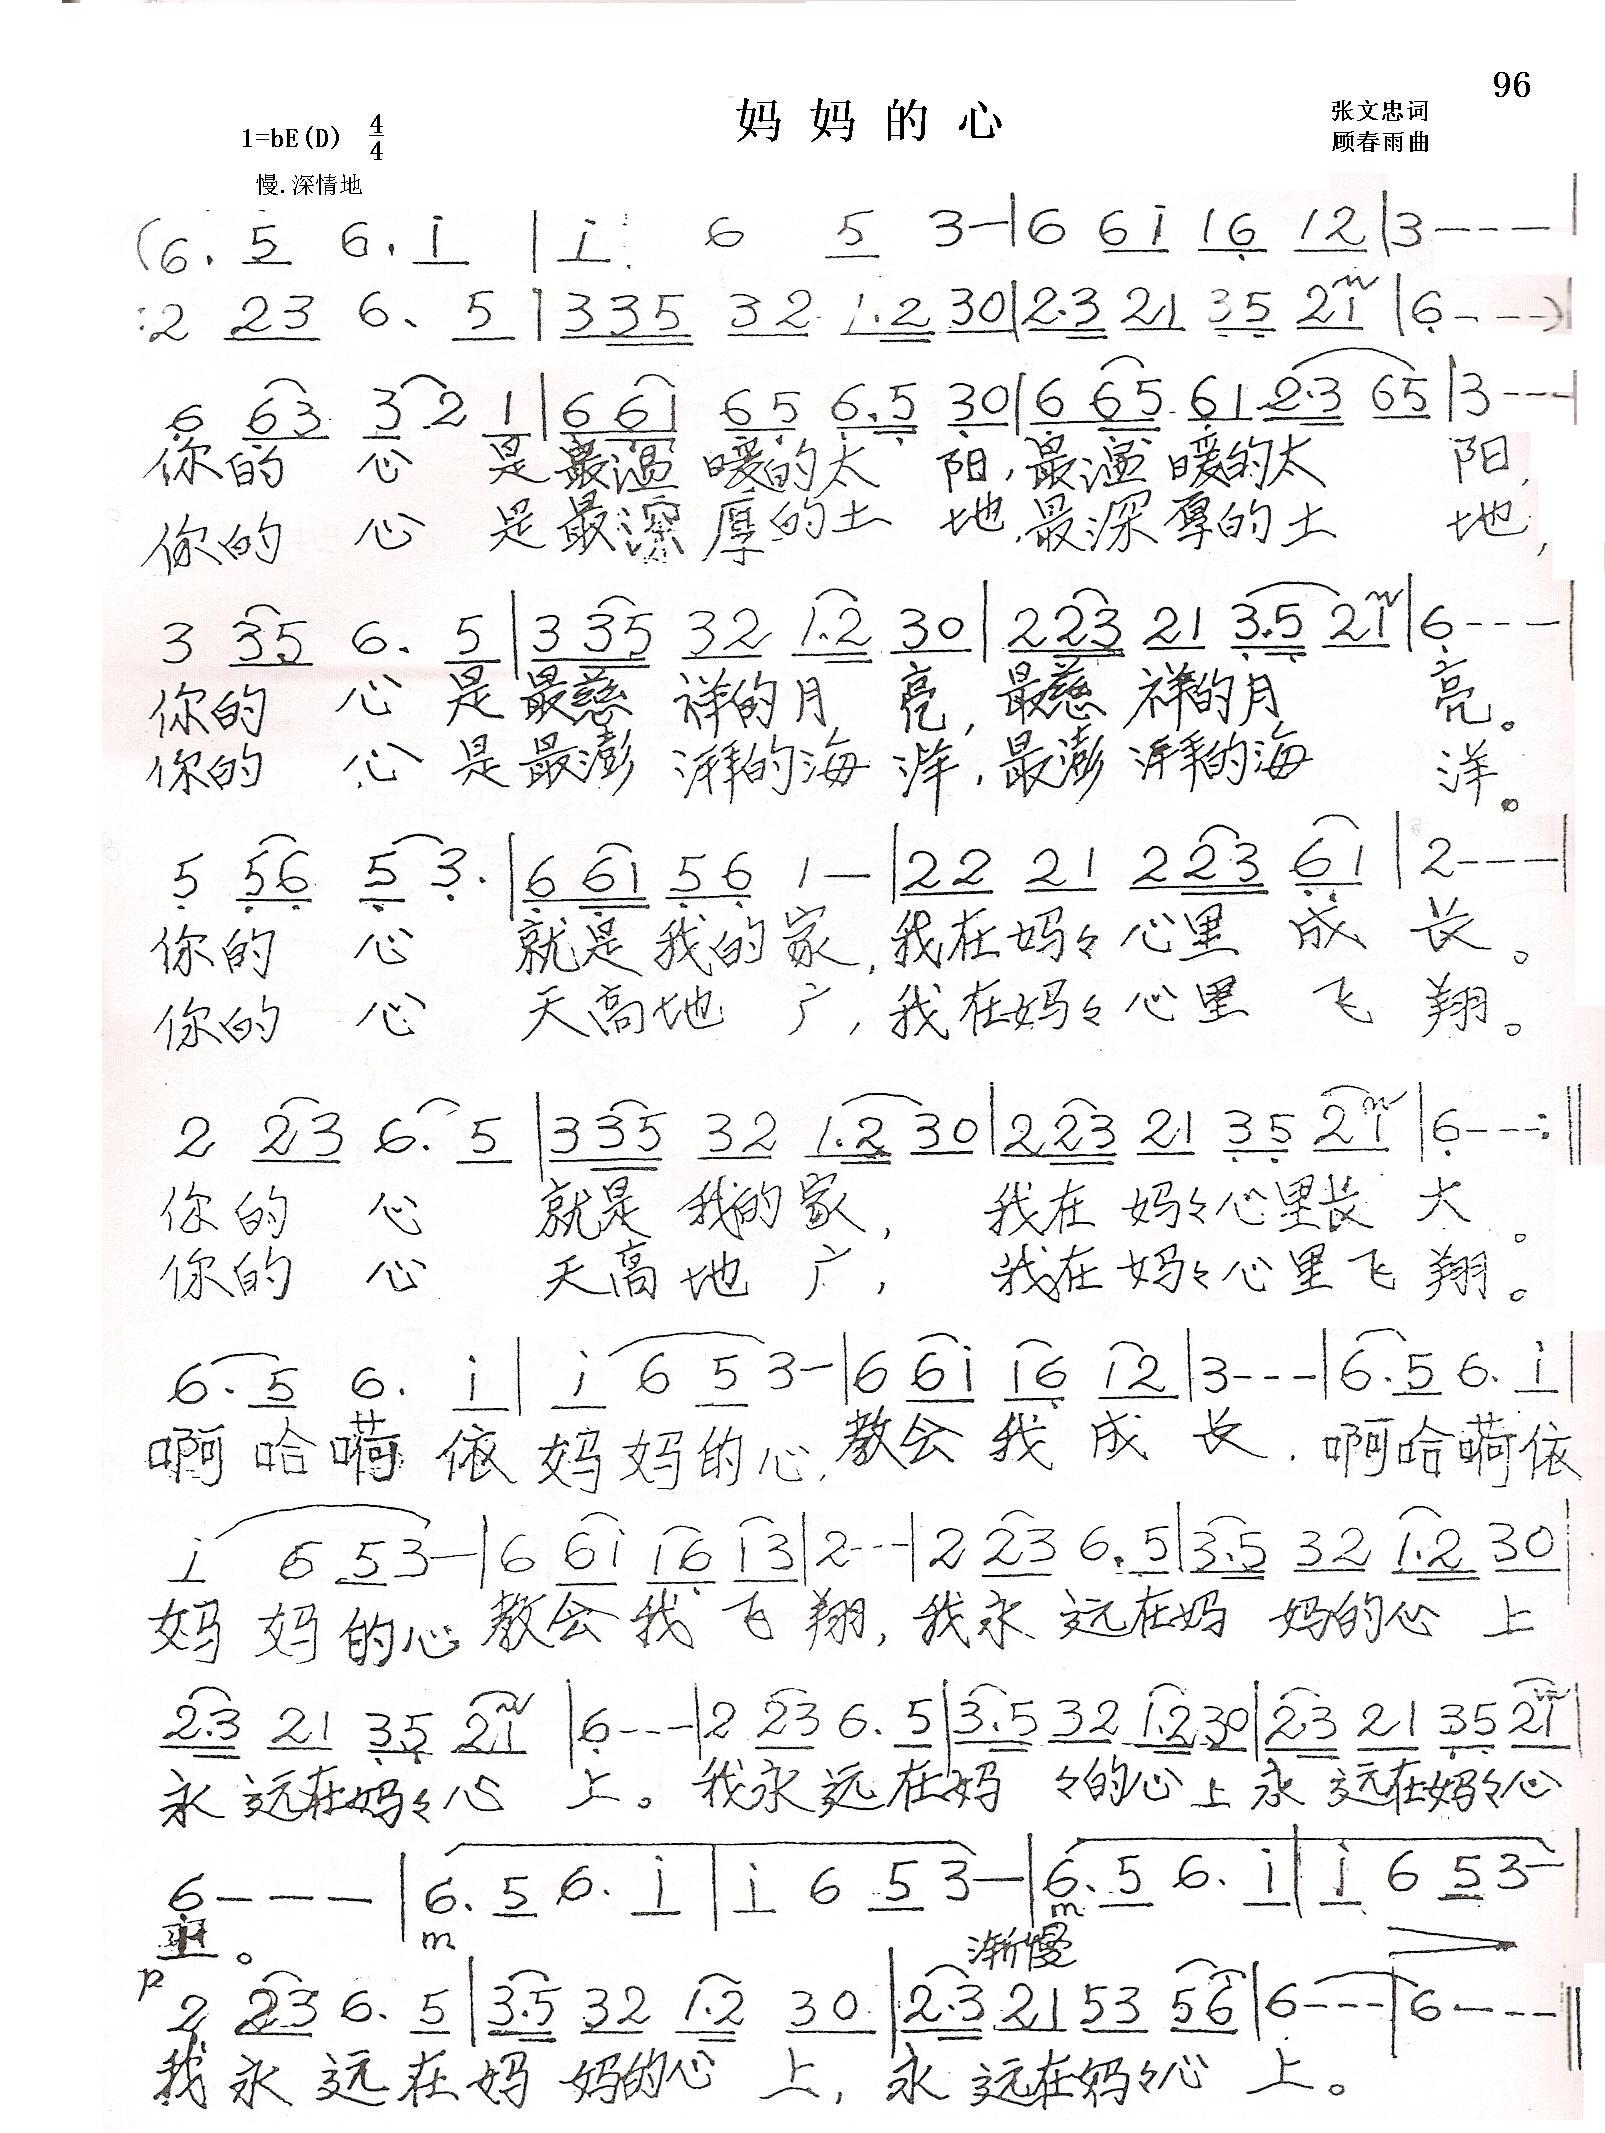 96
妈 妈 的 心
1=bE(D) 4/4
张文忠词
顾春雨曲
慢.深情地
(6. 5 6. i | i 6 5 3— | 6 6i 16 12 | 3---
2 23 6. 5 | 335 32 1.2 30 | 2.3 21 35 21 | 6---)
6 63 3 2 1 | 661 65 6.5 30 | 6 65 61 2.3 65 | 3---
你的 心 是最温 暖的太 阳,最温暖的太 阳,
你的 心 是最深厚的土 地,最深厚的土 地,
3 35 6. 5 | 3 35 32 1.2 30 | 2 23 21 3.5 21 | 6---
你的 心 是最慈 祥的月 亮,最慈 祥的月 亮。
你的 心 是最澎 湃的海 洋,最澎 湃的海 洋。
5 56 5 3. | 6 61 56 1— | 22 21 2 23 61 | 2---
你的 心 就是我的家,我在妈々心里 成 长。
你的 心 天高地 广,我在妈々心里 飞 翔。
2 23 6. 5 | 3 35 32 1.2 30 | 2 23 21 35 21 | 6---:‖
你的 心 就是 我的家, 我在 妈々心里长 大。
你的 心 天高地 广, 我在妈々心里飞 翔。
6. 5 6. i | i 6 5 3— | 6 6i i6 i2 | 3--- | 6.5 6. i |
啊 哈 嗬 依 妈 妈 的 心,教会 我 成 长.啊哈嗬依
i 6 53— | 6 6i i6 i3 | 2--- | 2 23 6. 5 | 3.5 32 1.2 30 |
妈 妈 的心 教会 我 飞 翔,我永 远在妈 妈的心 上
2.3 21 35 21 | 6--- | 2 23 6. 5 | 3.5 32 1.2 30 | 23 21 35 21 |
永 远在妈々心 上。我永 远 在妈 々的心上永 远在妈々心
6--- | 6. 5 6. i | i 6 5 3— | 6. 5 6. i | i 6 5 3—
里。 m 渐慢 m
p
2 23 6. 5 | 3.5 32 1.2 30 | 2.3 21 53 56 | 6--- | 6--- ‖
我 永 远 在 妈 妈的心 上,永 远在妈々心 上。